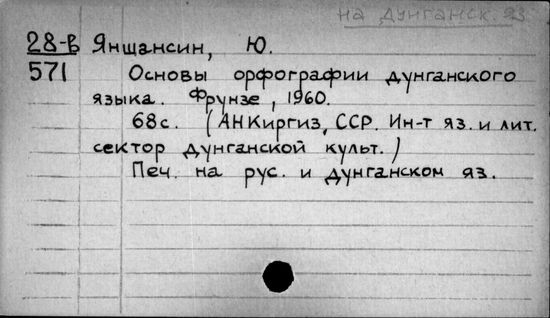 на дунганск. яз
28-в Яншансин, Ю.
571 Основы орфографии дунганского
языка. Фрунзе, 1960.
68с. (АН Киргиз. ССР. Ин-т яз. и лит.
сектор дунганской культ.)
Печ. на рус. и дунганском яз.